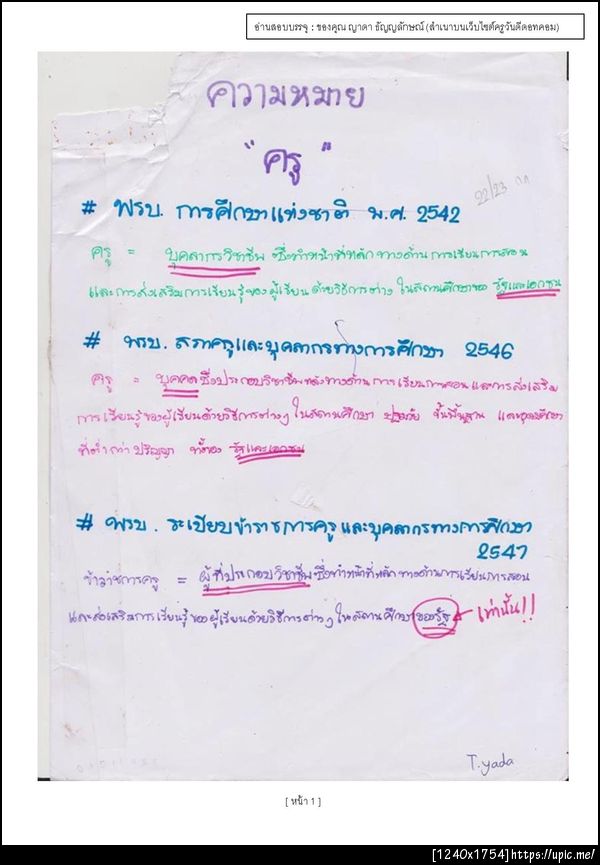 อ่านสอบบรรจุ : ของคุณ ญาดา ธัญญลักษณ์ (สำเนาบนเว็บไซต์ครูวันดีดอทคอม)
ความหมาย
"ครู"
22/23 กค
# พรบ. การศึกษาแห่งชาติ พ.ศ. 2542
ครู = บุคลากรวิชาชีพ ซึ่งทำหน้าที่หลักทางด้านการเรียนการสอน
และการส่งเสริมการเรียนรู้ของผู้เรียนด้วยวิธีการต่างๆ ในสถานศึกษาของ รัฐและเอกชน
# พรบ. สภาครูและบุคลากรทางการศึกษา 2546
ครู = บุคคล ซึ่งประกอบวิชาชีพหลักทางด้านการเรียนการสอนและการส่งเสริม
การเรียนรู้ของผู้เรียนด้วยวิธีการต่างๆ ในสถานศึกษา ปฐมวัย ขั้นพื้นฐาน และอุดมศึกษา
ที่ต่ำกว่าปริญญา ทั้งของ รัฐและเอกชน
# พรบ. ระเบียบข้าราชการครูและบุคลากรทางการศึกษา
2547
ข้าราชการครู = ผู้ที่ประกอบวิชาชีพ ซึ่งทำหน้าที่หลักทางด้านการเรียนการสอน
และส่งเสริมการเรียนรู้ของผู้เรียนด้วยวิธีการต่างๆ ในสถานศึกษา ของรัฐ เท่านั้น!!
T.yada
[ หน้า 1 ]
[1240x1754]https://upic.me/